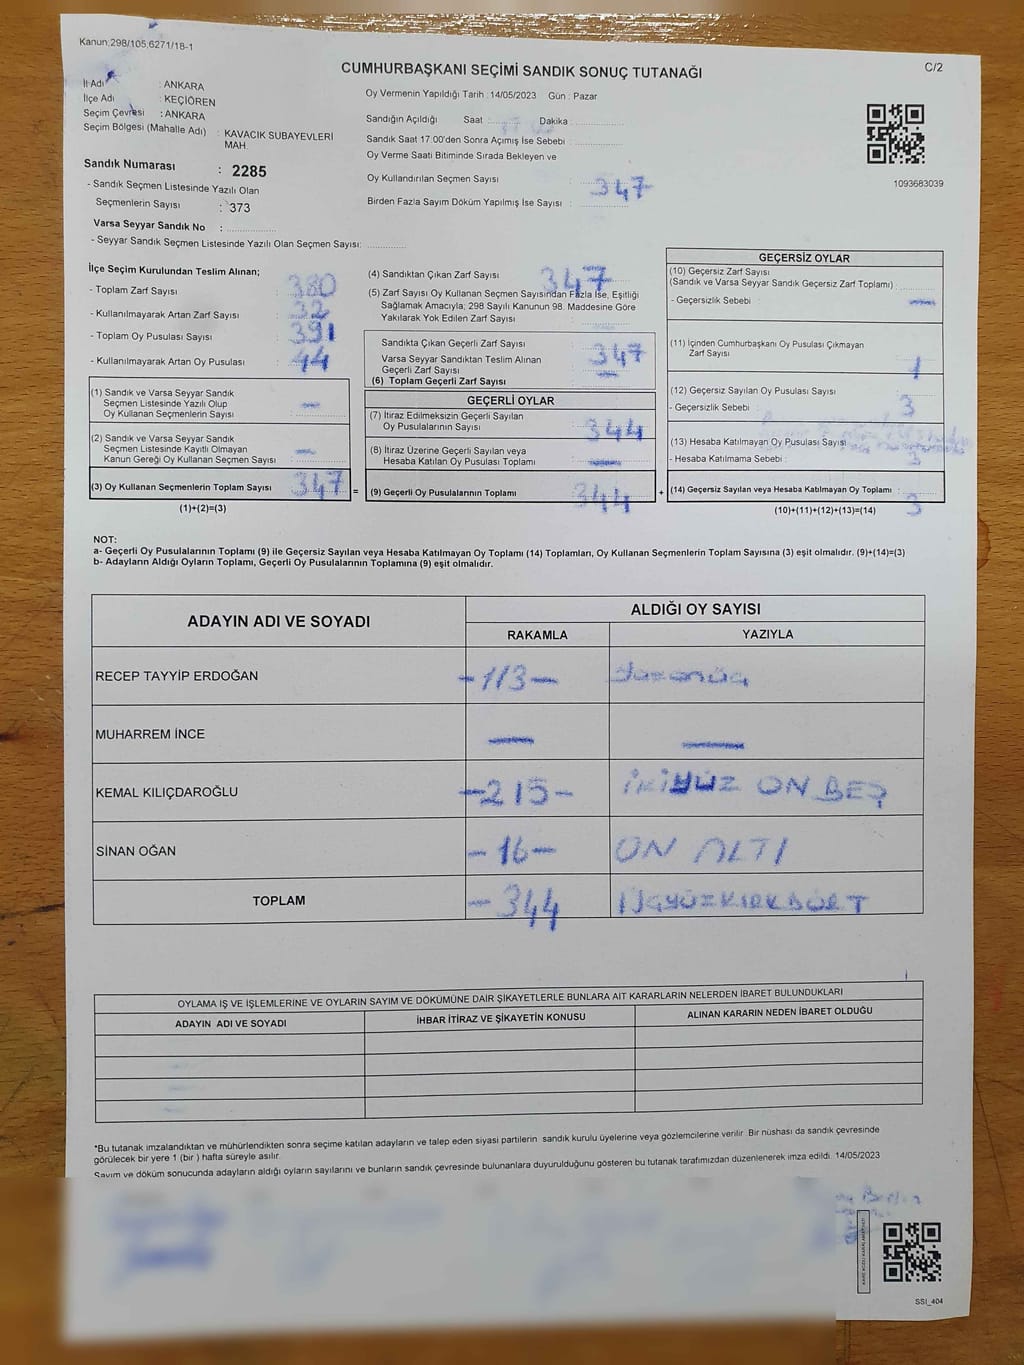 Kanun:298/105,6271/18-1
C/2
CUMHURBAŞKANI SEÇİMİ SANDIK SONUÇ TUTANAĞI
İl Adı : ANKARA
İlçe Adı : KEÇİÖREN
Seçim Çevresi : ANKARA
Seçim Bölgesi (Mahalle Adı) : KAVACIK SUBAYEVLERİ
MAH.
Sandık Numarası : 2285
- Sandık Seçmen Listesinde Yazılı Olan
Seçmenlerin Sayısı : 373
Varsa Seyyar Sandık No :
- Seyyar Sandık Seçmen Listesinde Yazılı Olan Seçmen Sayısı:
Oy Vermenin Yapıldığı Tarih : 14/05/2023 Gün : Pazar
Sandığın Açıldığı Saat : 17 00 Dakika :
Sandık Saat 17:00'den Sonra Açılmış İse Sebebi :
Oy Verme Saati Bitiminde Sırada Bekleyen ve
Oy Kullandırılan Seçmen Sayısı : 347
Birden Fazla Sayım Döküm Yapılmış İse Sayısı :
1093683039
İlçe Seçim Kurulundan Teslim Alınan;
- Toplam Zarf Sayısı : 380
- Kullanılmayarak Artan Zarf Sayısı : 32
- Toplam Oy Pusulası Sayısı : 391
- Kullanılmayarak Artan Oy Pusulası : 44
(1) Sandık ve Varsa Seyyar Sandık
Seçmen Listesinde Yazılı Olup
Oy Kullanan Seçmenlerin Sayısı : —
(2) Sandık ve Varsa Seyyar Sandık
Seçmen Listesinde Kayıtlı Olmayan
Kanun Gereği Oy Kullanan Seçmen Sayısı : —
(3) Oy Kullanan Seçmenlerin Toplam Sayısı : 347 =
(1)+(2)=(3)
(4) Sandıktan Çıkan Zarf Sayısı : 347
(5) Zarf Sayısı Oy Kullanan Seçmen Sayısından Fazla İse, Eşitliği
Sağlamak Amacıyla; 298 Sayılı Kanunun 98. Maddesine Göre
Yakılarak Yok Edilen Zarf Sayısı :
Sandıkta Çıkan Geçerli Zarf Sayısı : 347
Varsa Seyyar Sandıktan Teslim Alınan
Geçerli Zarf Sayısı : —
(6) Toplam Geçerli Zarf Sayısı :
GEÇERLİ OYLAR
(7) İtiraz Edilmeksizin Geçerli Sayılan
Oy Pusulalarının Sayısı : 344
(8) İtiraz Üzerine Geçerli Sayılan veya
Hesaba Katılan Oy Pusulası Toplamı : —
(9) Geçerli Oy Pusulalarının Toplamı : 344 +
GEÇERSİZ OYLAR
(10) Geçersiz Zarf Sayısı
(Sandık ve Varsa Seyyar Sandık Geçersiz Zarf Toplamı) :
- Geçersizlik Sebebi : —
(11) İçinden Cumhurbaşkanı Oy Pusulası Çıkmayan
Zarf Sayısı : 1
(12) Geçersiz Sayılan Oy Pusulası Sayısı : 3
- Geçersizlik Sebebi :
(13) Hesaba Katılmayan Oy Pusulası Sayısı
- Hesaba Katılmama Sebebi : 3
(14) Geçersiz Sayılan veya Hesaba Katılmayan Oy Toplamı : 3
(10)+(11)+(12)+(13)=(14)
NOT:
a- Geçerli Oy Pusulalarının Toplamı (9) ile Geçersiz Sayılan veya Hesaba Katılmayan Oy Toplamı (14) Toplamları, Oy Kullanan Seçmenlerin Toplam Sayısına (3) eşit olmalıdır. (9)+(14)=(3)
b- Adayların Aldığı Oyların Toplamı, Geçerli Oy Pusulalarının Toplamına (9) eşit olmalıdır.
ADAYIN ADI VE SOYADI ALDIĞI OY SAYISI
RAKAMLA YAZIYLA
RECEP TAYYİP ERDOĞAN -113- yüzonüç
MUHARREM İNCE — —
KEMAL KILIÇDAROĞLU -215- İKİYÜZ ON BEŞ
SİNAN OĞAN -16- ON ALTI
TOPLAM -344 ÜÇYÜZKIRKDÖRT
OYLAMA İŞ VE İŞLEMLERİNE VE OYLARIN SAYIM VE DÖKÜMÜNE DAİR ŞİKAYETLERLE BUNLARA AİT KARARLARIN NELERDEN İBARET BULUNDUKLARI
ADAYIN ADI VE SOYADI İHBAR İTİRAZ VE ŞİKAYETİN KONUSU ALINAN KARARIN NEDEN İBARET OLDUĞU
*Bu tutanak imzalandıktan ve mühürlendikten sonra seçime katılan adayların ve talep eden siyasi partilerin sandık kurulu üyelerine veya gözlemcilerine verilir. Bir nüshası da sandık çevresinde
görülecek bir yere 1 (bir) hafta süreyle asılır.
Sayım ve döküm sonucunda adayların aldığı oyların sayılarını ve bunların sandık çevresinde bulunanlara duyurulduğunu gösteren bu tutanak tarafımızdan düzenlenerek imza edildi. 14/05/2023
SSI_404